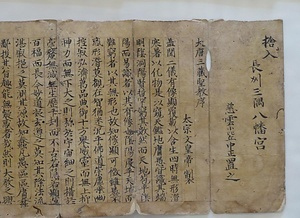 捨入
長州三隅八幡宮
大唐三藏聖教序
太宗文皇帝製
蓋聞二儀有像顯覆載以含生四時無形潛
寒暑以化物是以窺天鑑地庸愚皆識其端
明陰洞陽賢哲罕窮其數然而天地苞乎陰
陽而易識者以其有像也陰陽處乎天地而
難窮者以其無形也故知像顯可徵雖愚不
惑形潛莫覩在智猶迷況乎佛道崇虛乘幽
控寂弘濟萬品典御十方舉威靈而無上抑
神力而無下大之則彌於宇宙細之則攝於
毫釐無滅無生歷千劫而不古若隱若顯運
百福而長今妙道凝玄遵之莫知其際法流
湛寂挹之莫測其源故知蠢蠢凡愚區區庸
鄙投其旨趣能無疑惑者哉然則大教之興